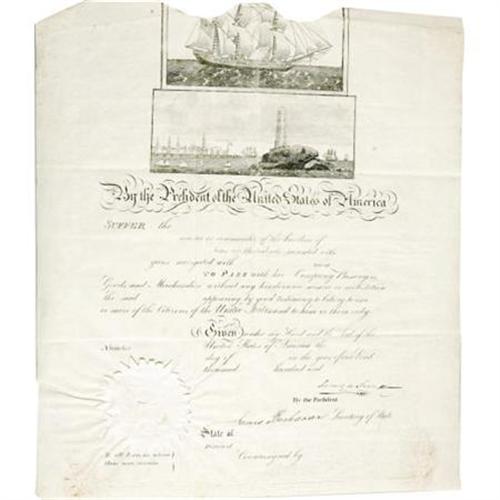 By the President of the United States of America
SUFFER the
master or commander of the burthen of
tons or thereabouts mounted with
guns navigated with men
TO PASS with her Company Passengers
Goods and Merchandize without any hinderance seizure or molestation
the said appearing by good testimony to belong to one
or more of the Citizens of the United States and to him or them only.
Given under my Hand and the Seal of the
United States of America the
day of in the year of our Lord
thousand hundred and
By the President
James Buchanan Secretary of State
State of
District
Countersigned by